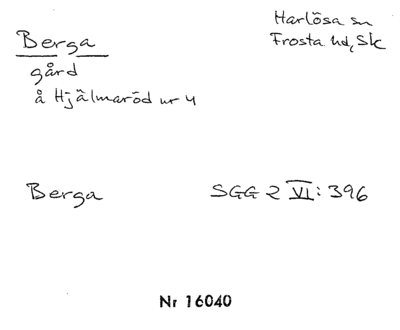 Berga
Harlösa sn
Frosta hd, Sk
gård
å Hjälmaröd nr 4
Berga
SGG 2 VI: 396
Nr 16040